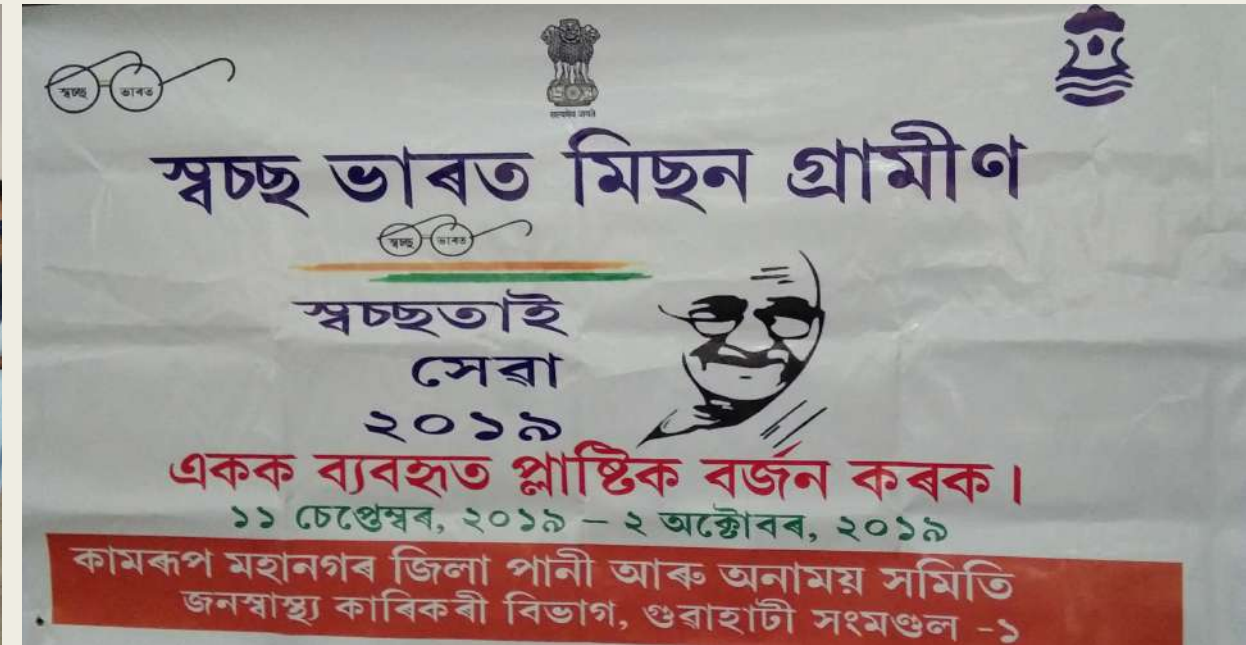 স্বচ্ছ ভাৰত
सत्यमेव जयते
স্বচ্ছ ভাৰত মিছন গ্ৰামীণ
স্বচ্ছ ভাৰত
স্বচ্ছতাই
সেৱা
২০১৯
একক ব্যবহৃত প্লাষ্টিক বৰ্জন কৰক।
১১ চেপ্তেম্বৰ, ২০১৯ – ২ অক্টোবৰ, ২০১৯
কামৰূপ মহানগৰ জিলা পানী আৰু অনাময় সমিতি
জনস্বাস্থ্য কাৰিকৰী বিভাগ, গুৱাহাটী সংমণ্ডল -১